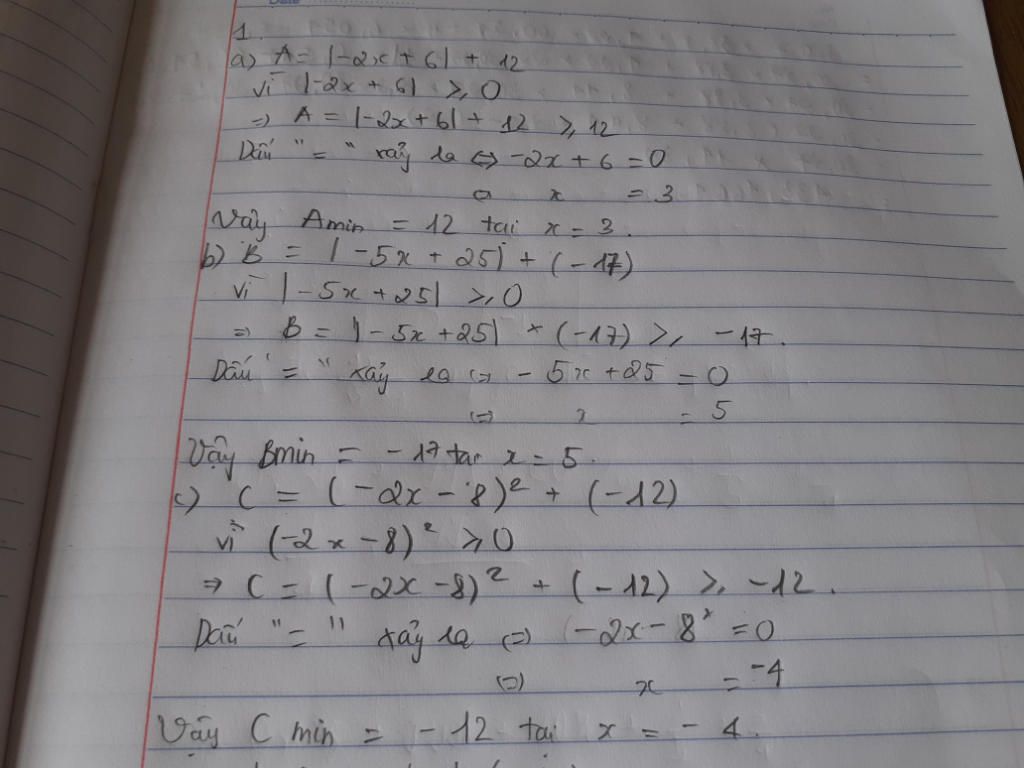 Date
1.
a) A = |-2x + 6| + 12
vì |-2x + 6| ≥ 0
=> A = |-2x + 6| + 12 ≥ 12
Dấu "=" xảy ra <=> -2x + 6 = 0
<=> x = 3
Vậy Amin = 12 tại x = 3.
b) B = |-5x + 25| + (-17)
vì |-5x + 25| ≥ 0
=> B = |-5x + 25| + (-17) ≥ -17.
Dấu "=" xảy ra <=> -5x + 25 = 0
<=> x = 5
Vậy Bmin = -17 tại x = 5.
c) C = (-2x - 8)² + (-12)
vì (-2x - 8)² ≥ 0
=> C = (-2x - 8)² + (-12) ≥ -12.
Dấu "=" xảy ra <=> (-2x - 8² = 0
<=> x = -4
Vậy C min = -12 tại x = -4.